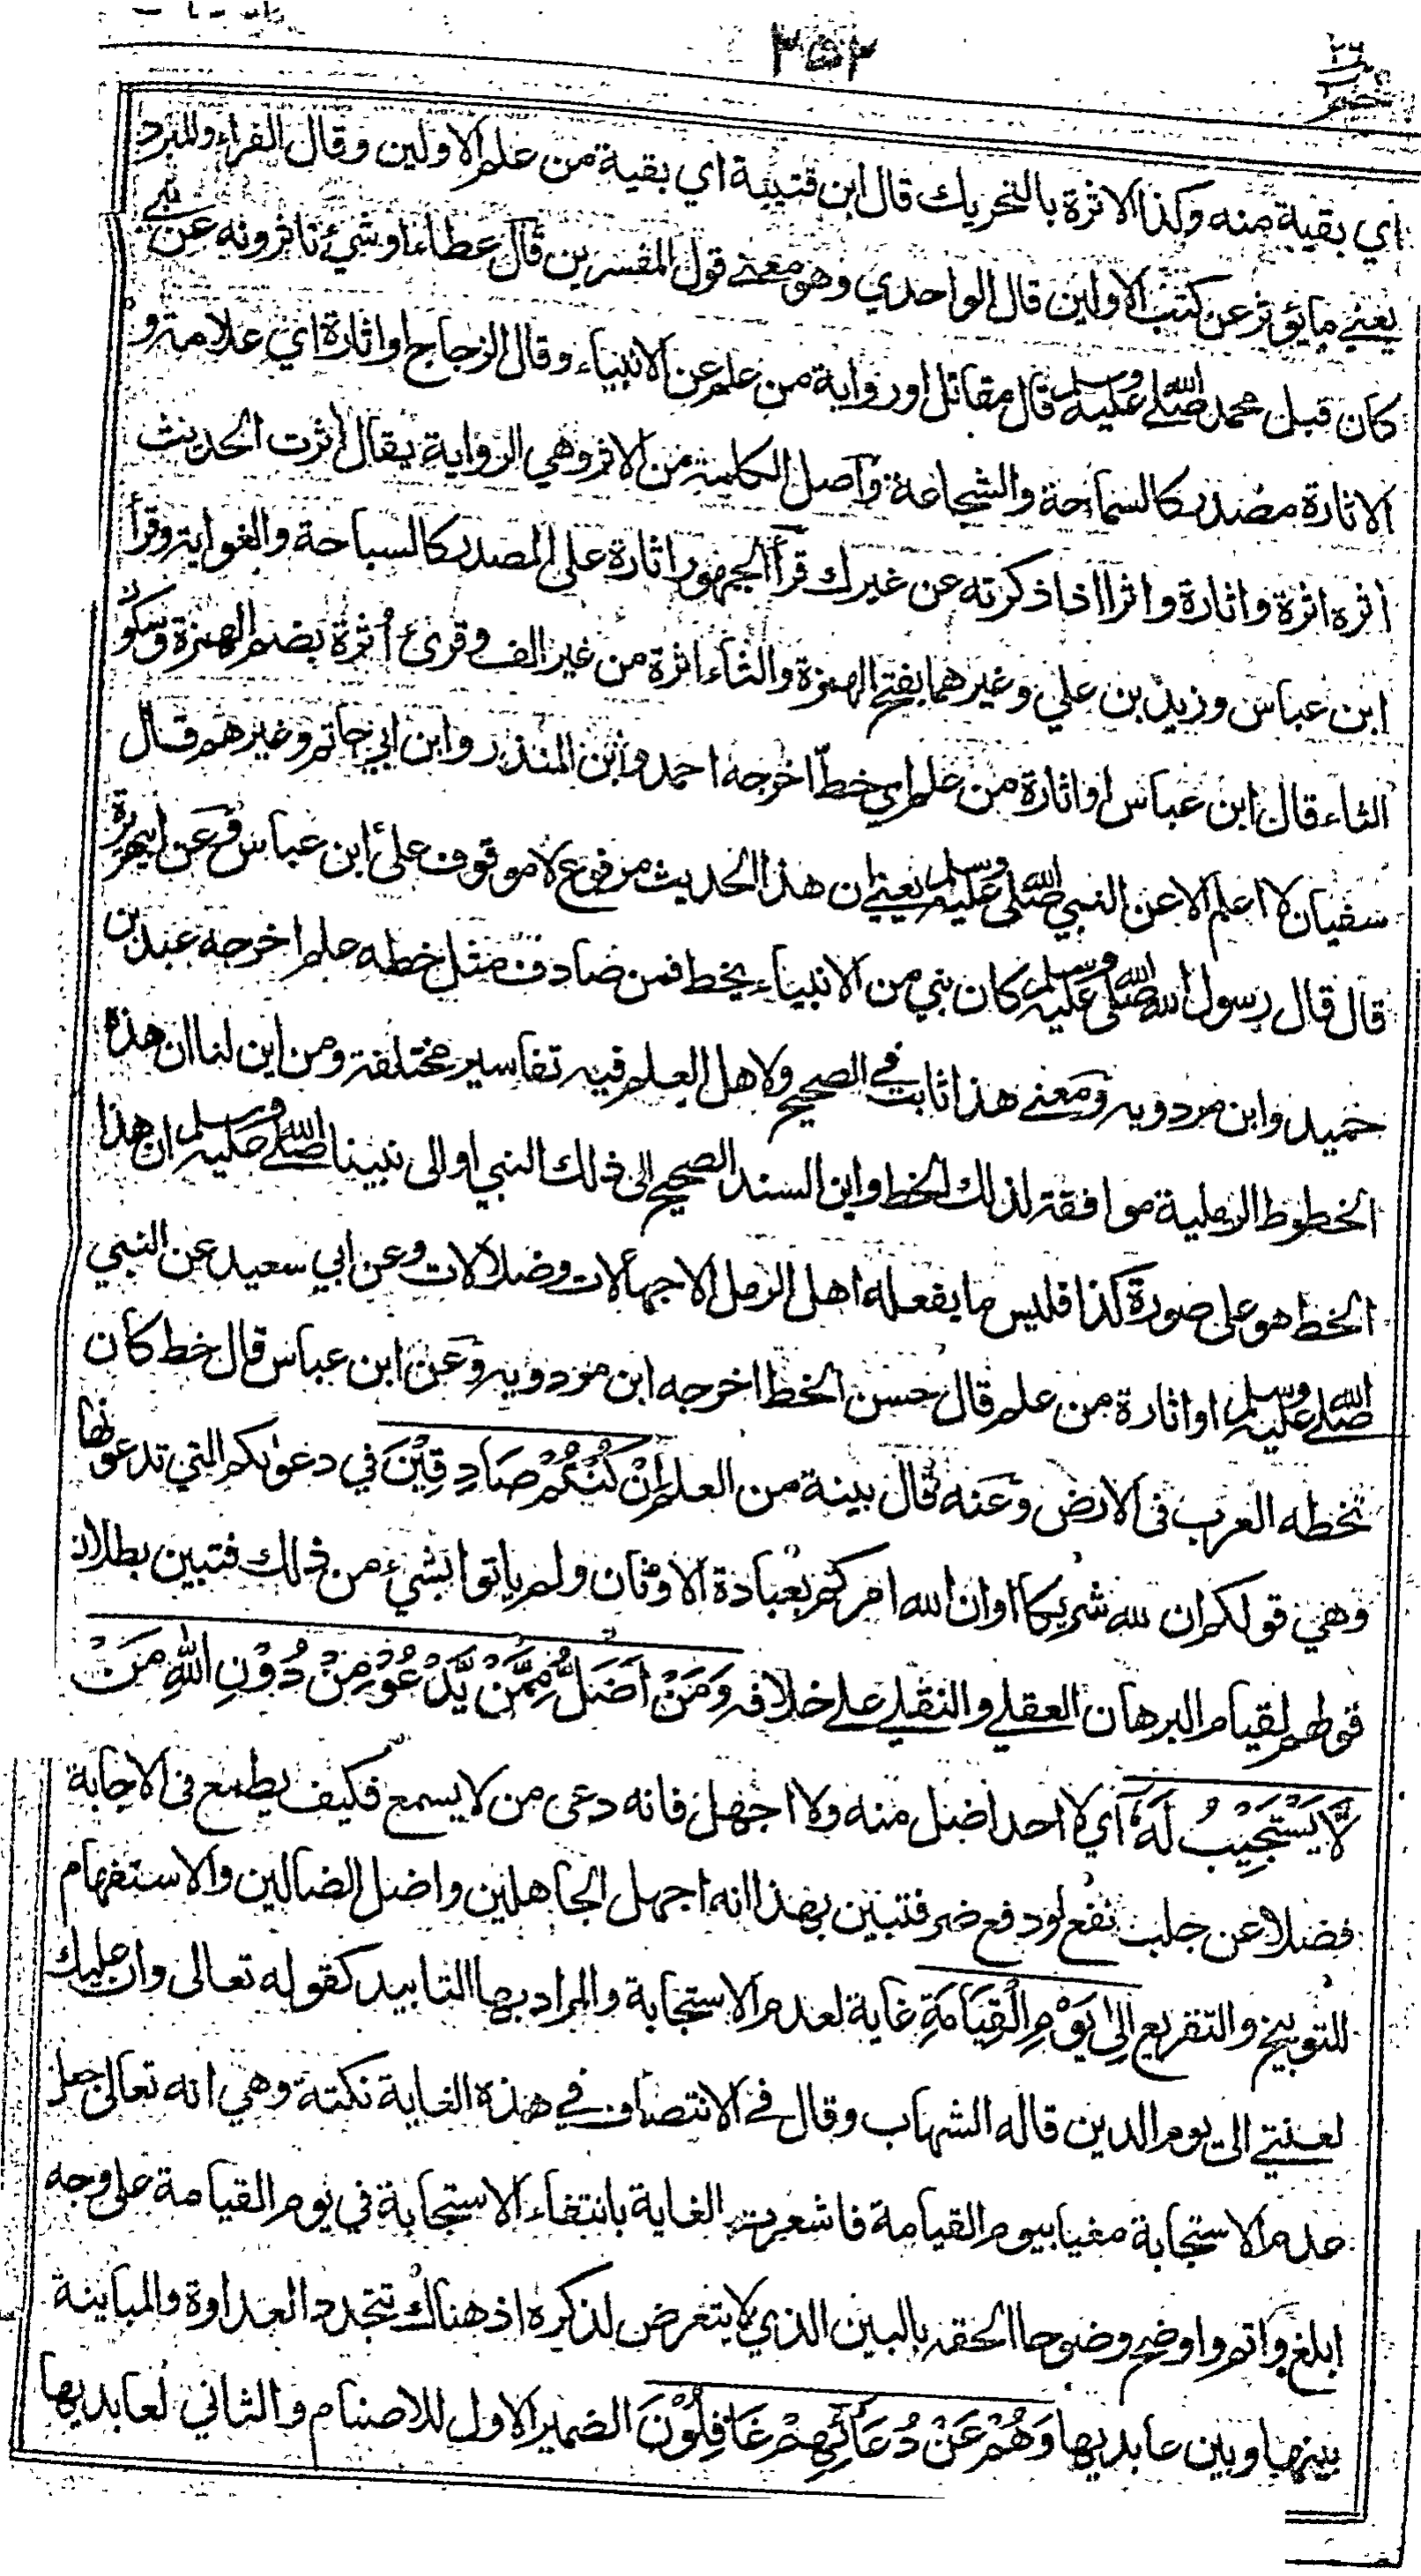 ٢٥٢
اي بقية منه وكذا الاثرة بالتحريك قال ابن قتيبة اي بقية من علم الاولين وقال الفراء والمبرد
يعني ما يؤثر عن كتب الاولين قال الواحدي وهو معنى قول المفسرين قال عطاء او شيء تاثرونه عن نبي
كان قبل محمد صلى الله عليه وسلم قال مقاتل او رواية من علم عن الانبياء وقال الزجاج او اثارة اي علامة و
الاثارة مصدر كالسماحة والشجاعة واصل الكلمة من الاثر وهي الرواية يقال اثرت الحديث
اثره اثرة واثارة واثرا اذا ذكرته عن غيرك قرأ الجمهور اثارة على المصدر كالسباحة والغواية وقرأ
ابن عباس وزيد بن علي وغيرهما بفتح الهمزة والثاء اثرة من غير الف وقرئ أثرة بضم الهمزة وسكون
الثاء قال ابن عباس او اثارة من علم اي خطّ اخرجه احمد وابن المنذر وابن ابي حاتم وغيرهم قال
سفيان لا اعلم الا عن النبي صلى الله عليه وسلم يعني ان هذا الحديث مرفوع لا موقوف على ابن عباس وعن ابي هريرة
قال قال رسول الله صلى الله عليه وسلم كان نبي من الانبياء يخط فمن صادف مثل خطه علم اخرجه عبد بن
حميد وابن مردويه ومعنى هذا ثابت في الصحيح ولاهل العلم فيه تفاسير مختلفة ومن اين لنا ان هذه
الخطوط الرملية موافقة لذلك الخط واين السند الصحيح الى ذلك النبي او الى نبينا صلى الله عليه وسلم ان هذا
الخط هو على صورة كذا فليس ما يفعله اهل الرمل الا جهالات وضلالات وعن ابي سعيد عن النبي
صلى الله عليه وسلم او اثارة من علم قال حسن الخط اخرجه ابن مردويه وعن ابن عباس قال خط كان
تخطه العرب في الارض وعنه قال بينة من العلم اِنْ كُنْتُمْ صَادِقِيْنَ في دعوٰىكم التي تدعونها
وهي قولكم ان لله شريكا او ان الله امركم بعبادة الاوثان ولم ياتوا بشيء من ذلك فتبين بطلان
قولهم لقيام البرهان العقلي والنقلي على خلافه وَمَنْ اَضَلُّ مِمَّنْ يَّدْعُوْ مِنْ دُوْنِ اللّٰهِ مَنْ
لَّا يَسْتَجِيْبُ لَهٗ اي لا احد اضل منه ولا اجهل فانه دعى من لا يسمع فكيف يطمع في الاجابة
فضلا عن جلب نفع او دفع ضر فتبين بهذا انه اجهل الجاهلين واضل الضالين والاستفهام
للتوبيخ والتقريع اِلٰى يَوْمِ الْقِيَامَةِ غاية لعدم الاستجابة والمراد بها التابيد كقوله تعالى وان عليك
لعنتي الى يوم الدين قاله الشهاب وقال في الانتصاف في هذه الغاية نكتة وهي انه تعالى جعل
عدم الاستجابة مغيا بيوم القيامة فاشعرت الغاية بانتفاء الاستجابة في يوم القيامة على وجه
ابلغ واتم واوضح وضوحا الحقه بالبين الذي لا يتعرض لذكره اذ هناك تتجدد العداوة والمباينة
بينها وبين عابديها وَهُمْ عَنْ دُعَآئِهِمْ غَافِلُوْنَ الضمير الاول للاصنام والثاني لعابديها